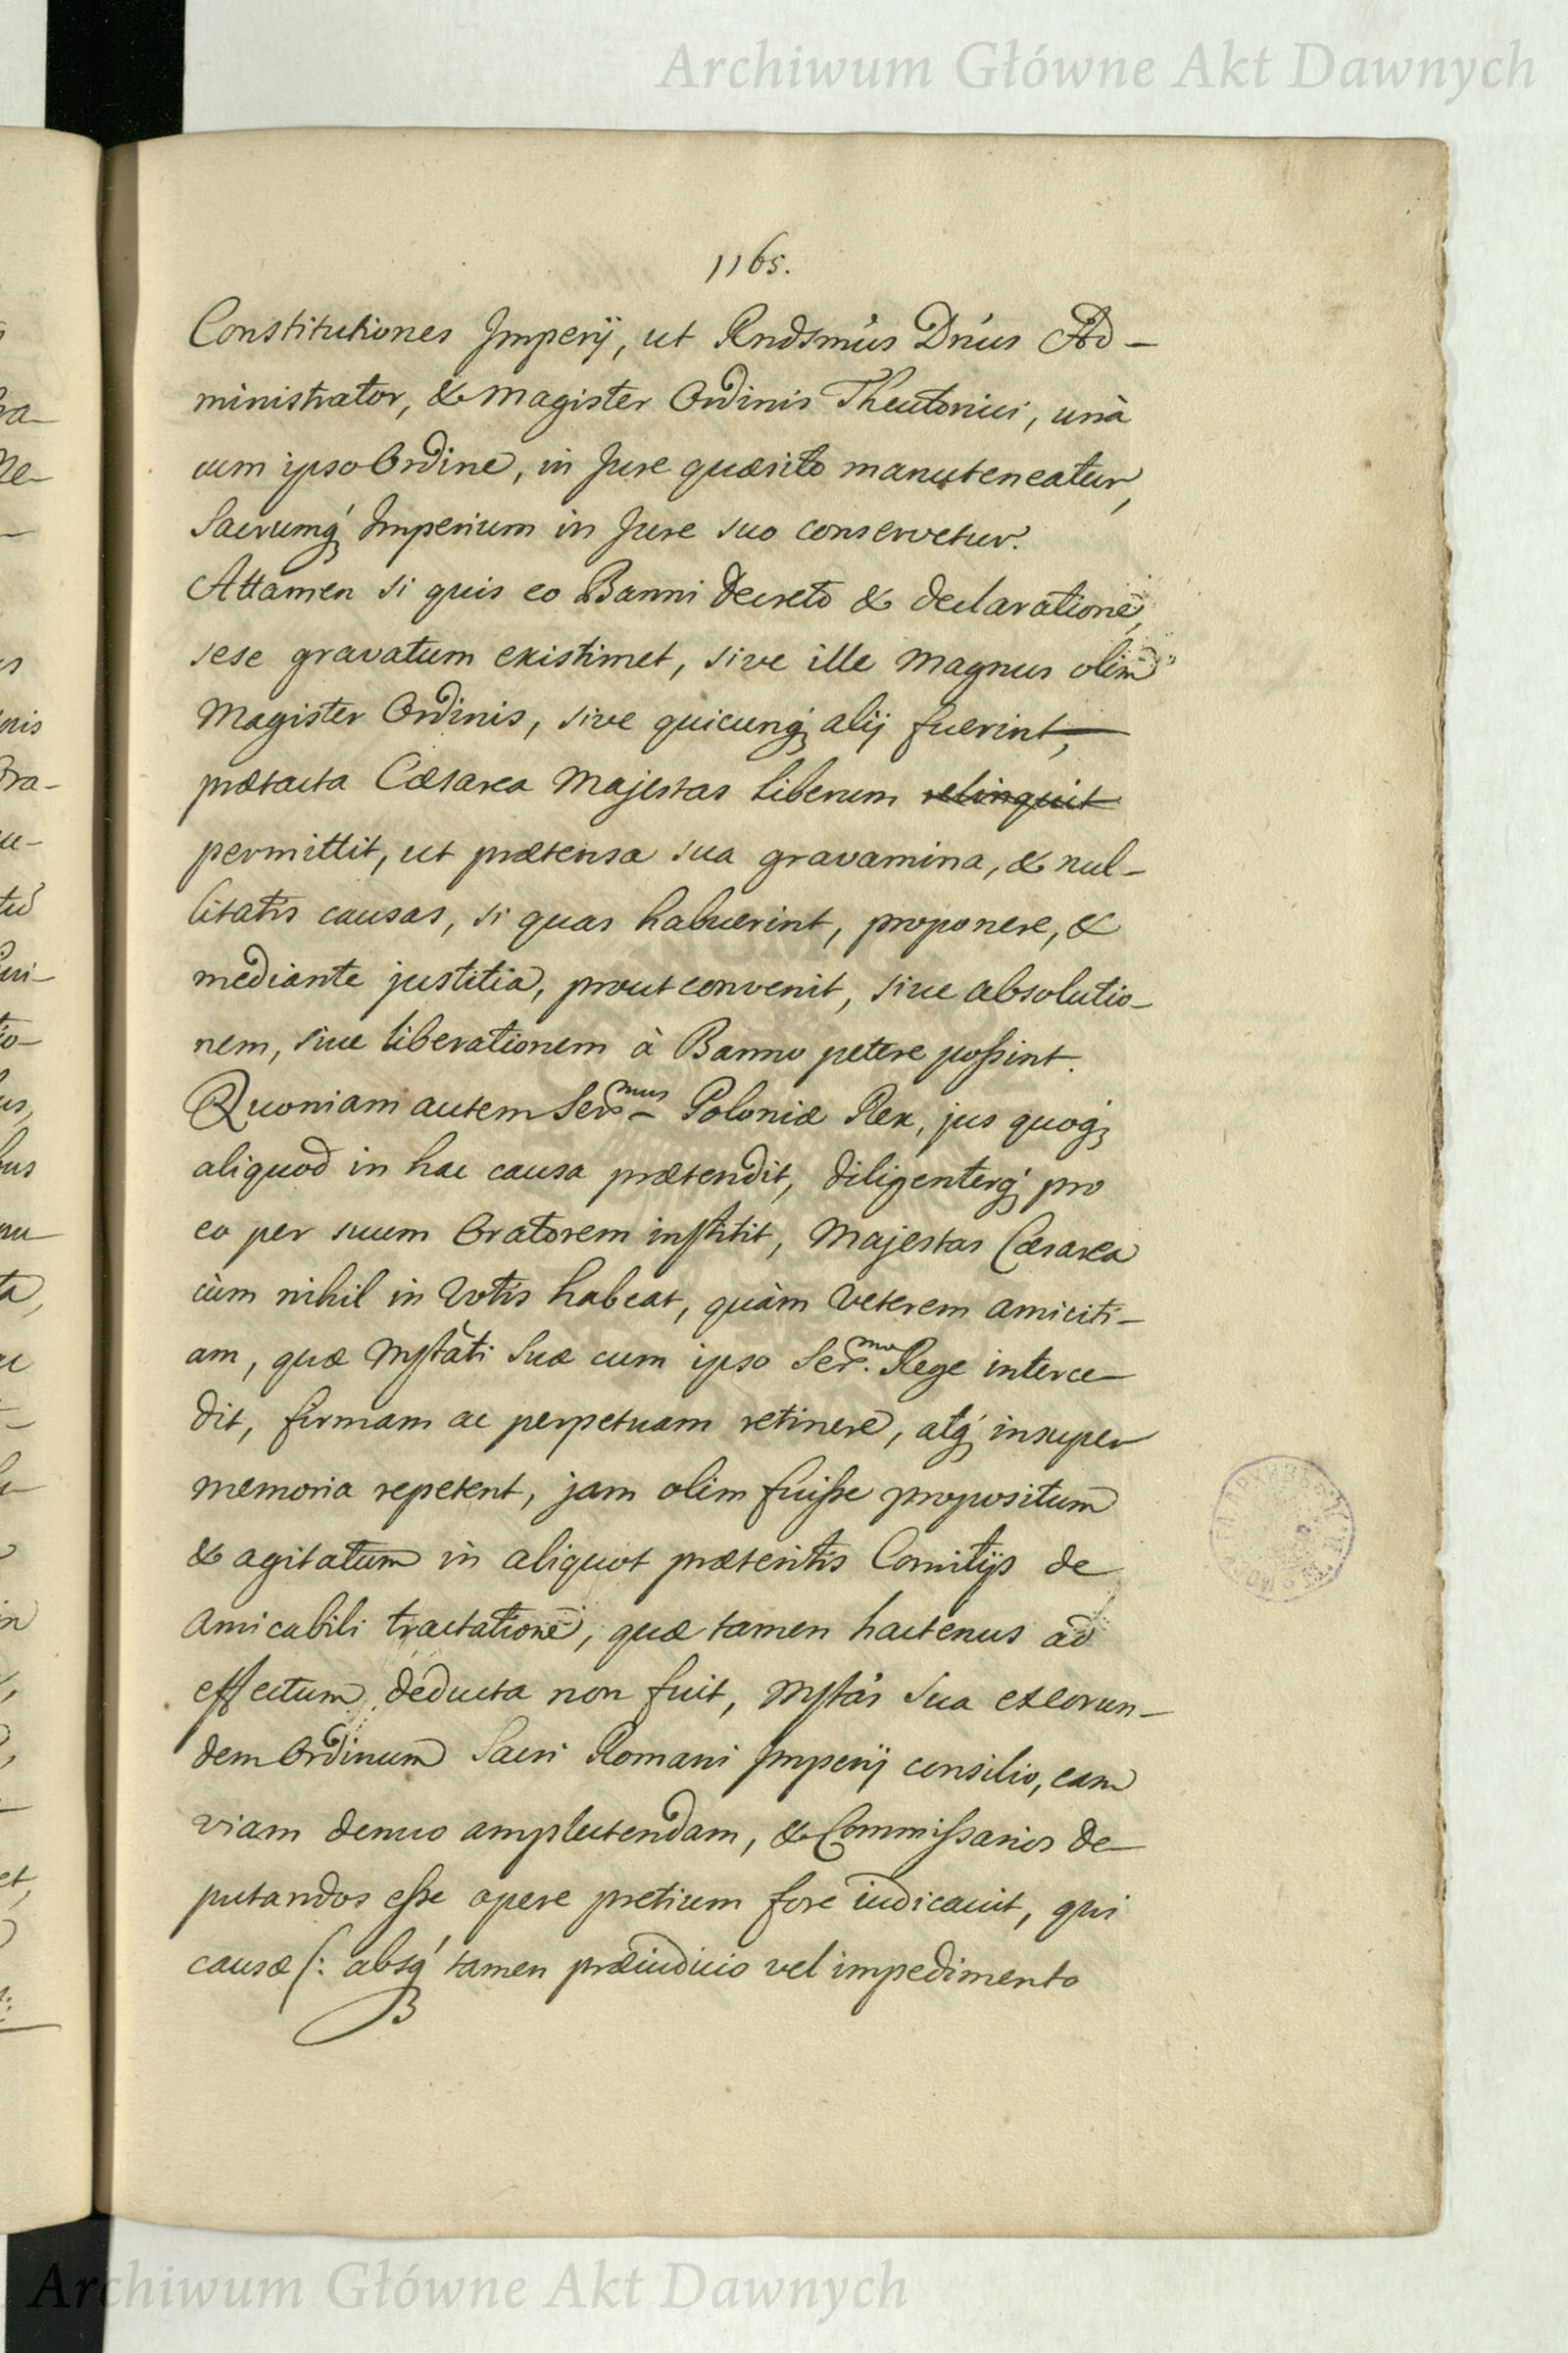 Archiwum Główne Akt Dawnych
1165.
Constitutiones Imperÿ, ut Rndsmùs Dnùs Ad-
ministrator, & Magister Ordinis Theutonici, unà
cum ipso Ordine, in Jure quæsito manuteneatur,
Sacrumq́ Imperium in Jure suo conservetur.
Attamen si quis eo Banni decreto & declaratione,
sese gravatum existimet, sive ille magnus olim
Magister Ordinis, sive quicunq́; alÿ fuerint,
prætacta Cæsarea Majestas liberum relinquit
permittit, ut prætensa sua gravamina, & nul-
litatis causas, si quas habuerint, proponere, &
mediante justitia, prout convenit, sive absolutio-
nem, sive liberationem à Banno petere possint.
Quoniam autem Sers mus Poloniæ Rex, jus quoq́;
aliquod in hac causa prætendit, diligenterq́ pro
eo per suum Oratorem institit, Majestas Cæsarea
cùm nihil in votis habeat, quàm veterem amiciti-
am, quæ Mstàti Suæ cum ipso Ser. mo Rege interce-
dit, firmam ac perpetuam retinere, atq́ insuper
memoria repetent, jam olim fuisse propositum
& agitatum in aliquot præteritis Comitÿs de
amicabili tractatione, quæ tamen hactenus ad
effectum deducta non fuit, Mstàs Sua ex eorun-
dem Ordinum Sacri Romani Imperÿ consilio, eam
viam denuo amplectendam, & Commissarios de-
putandos esse opere pretium fore iudicavit, qui
causæ (: absq́ tamen præiudicio vel impedimento
Archiwum Główne Akt Dawnych